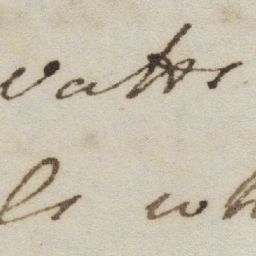 watts
ls wh